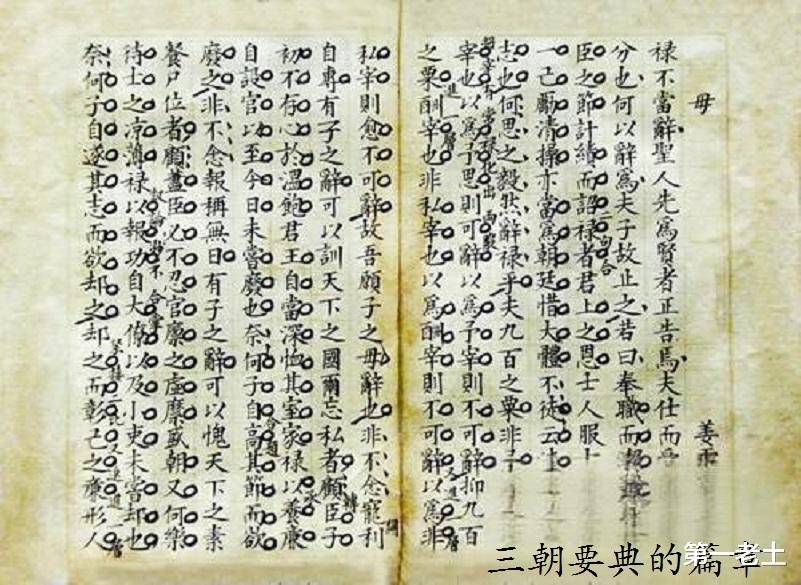 毋
姜
禄不當辭聖人先爲賢者正告焉夫仕而
分也何以辭爲夫子故止之若曰奉職而報
臣之節計績而詔禄者君上之恩士人服
一己勵清操亦當爲朝廷惜大體不徒云
志也何思之毅然辭禄乎夫九百之粟非子
宰也以爲予思則可辭以爲予宰則不可辭抑九百
之粟酬宰也非私宰也以爲酬宰則不可辭以爲非
私宰則愈不可辭故吾願子之毋辭也非不念寵利
自專有子之辭可以訓天下之國爾忘私者顧臣子
初不存心於温飽君王自當深恤其室家禄以養廉
自設官以至今日未嘗廢也奈何子自高其節而欲
廢之非不念報稱無日有子之辭可以愧天下之素
餐尸位者顧藎臣必不忍官廩之虚縻盛朝又何樂
待士之凉薄禄以報功自大僚以及小吏未嘗却也
奈何子自遂其志而欲却之却之而彰己之廉形人
三朝要典的篇章
第一老士